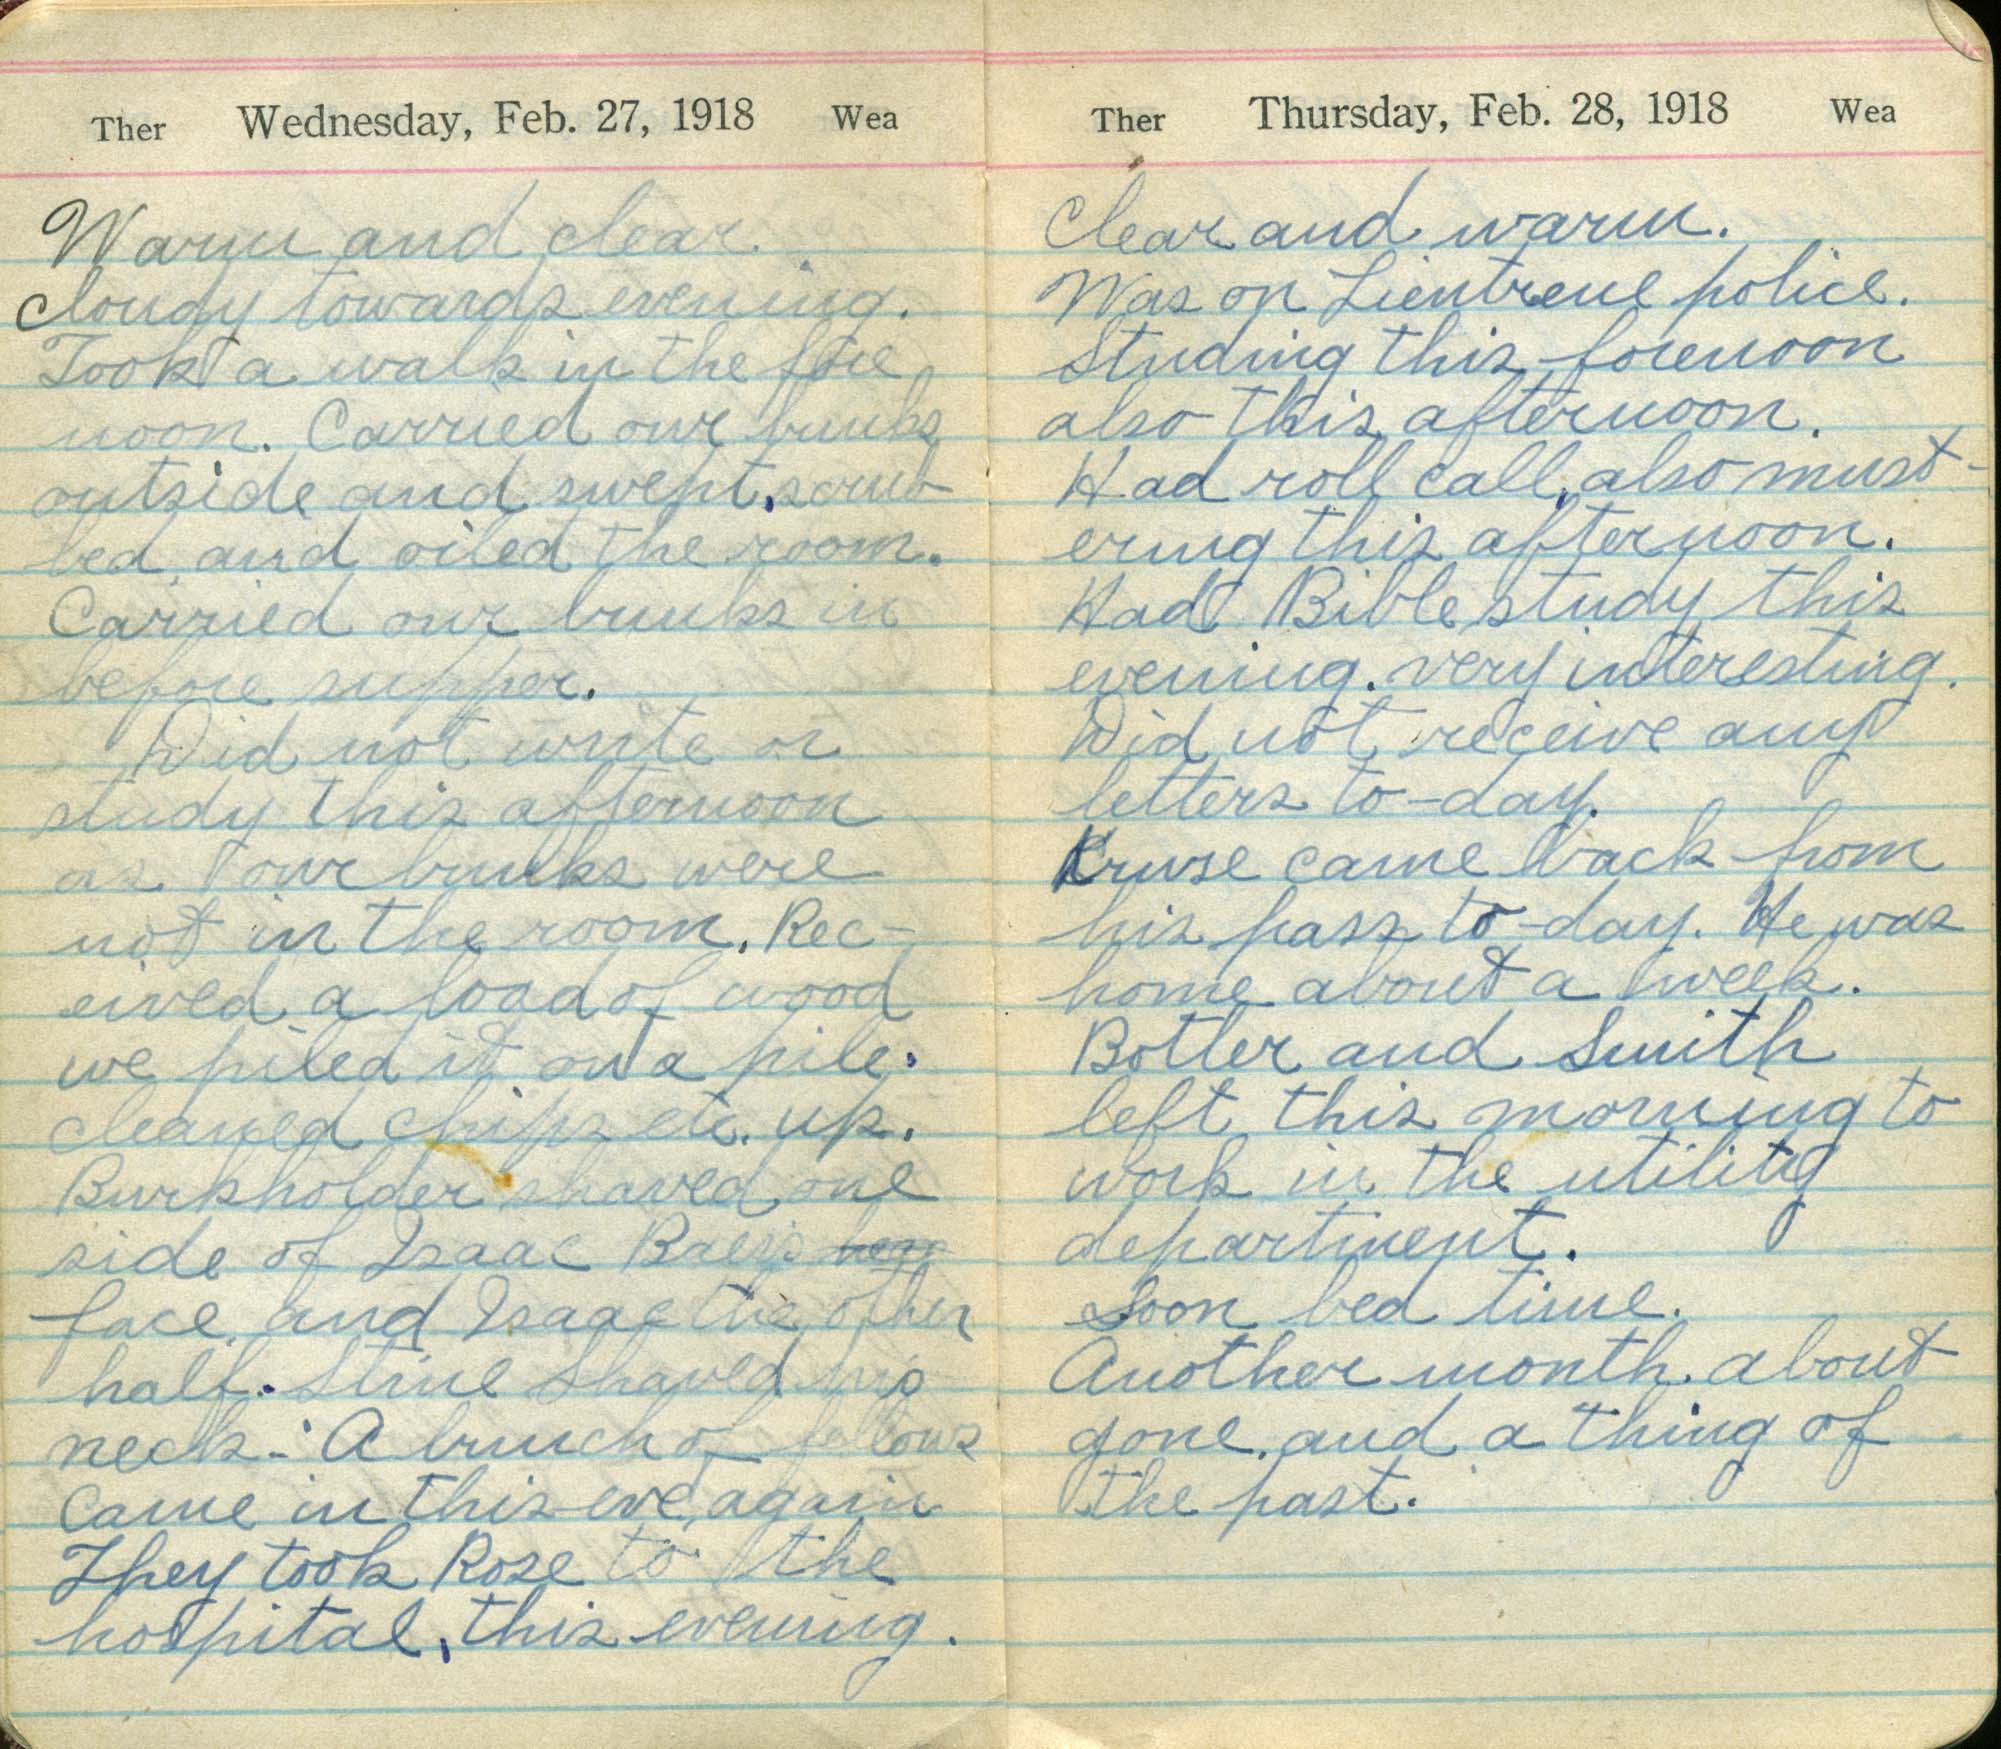 Ther Wednesday, Feb. 27, 1918 Wea
Warm and clear.
cloudy towards evening.
Took a walk in the fore
noon. Carried our bunks
outside and swept, scrub
bed and oiled the room.
Carried our bunks in
before supper.
Did not write or
study this afternoon
as our bunks were
not in the room. Rec-
eived a load of wood
we piled it on a pile.
cleaned chips etc. up.
Burkholder shaved one
side of Isaac Baer's
face and Isaac the other
half. Stine shaved his
neck. A bunch of fellows
came in this eve, again
They took Rose to the
hospital, this evening.
Ther Thursday, Feb. 28, 1918 Wea
Clear and warm.
Was on police.
Studing this forenoon
also this afternoon.
Had roll call, also must-
ering this afternoon.
Had Bible study this
evening. very interesting.
Did not receive any
letters to-day.
Kruse came back from
his pass to-day. He was
home about a week.
Botler and Smith
left this morning to
work in the utility
department.
Soon bed time.
Another month about
gone and a thing of
the past.